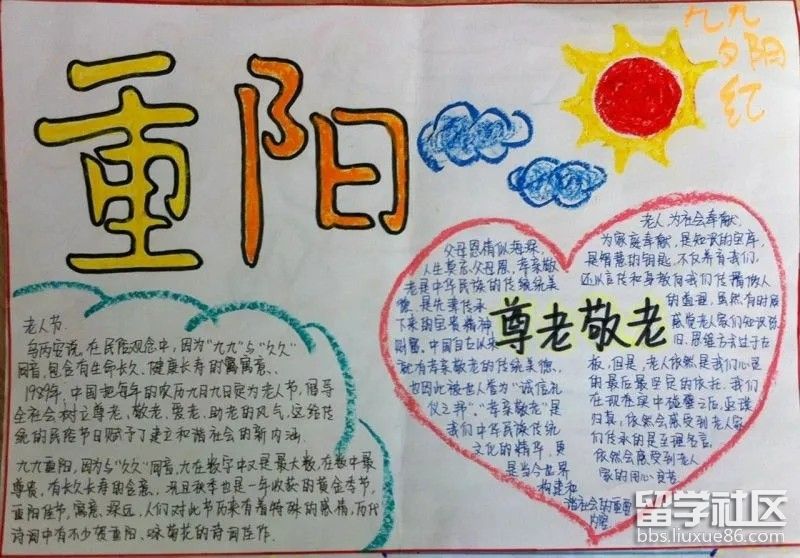 重阳
九九
夕阳
红
老人节.
乌丙安说,在民俗观念中,因为“九九”与“久久”
同音,包含有生命长久、健康长寿的寓意.
1989年,中国把每年的农历九月九日定为老人节,倡导
全社会树立尊老、敬老、爱老、助老的风气,这给传
统的民俗节日赋予了建立和谐社会的新内涵.
九九重阳,因为与“久久”同音,九在数字中又是最大数,在数中最
尊贵,有长久长寿的含意,况且秋季也是一年收获的黄金季节,
重阳佳节,寓意深远,人们对此节历来有着特殊的感情,历代
诗词中有不少贺重阳、咏菊花的诗词佳作.
尊老敬老
父母恩情似海深,
人生莫忘父母恩,孝亲敬
老是中华民族的传统美
德,是先辈传承
下来的宝贵精神
财富.中国自古以来
就有孝亲敬老的传统美德,
也因此被世人誉为“诚信礼
仪之邦”,“孝亲敬老”是
我们中华民族传统
文化的精华,更
是当今世界
构建和
谐社会的重要
内容
老人,为社会奉献.
为家庭奉献,是知识的宝库,
是智慧的钥匙,不仅养育我们,
还以言传和身教向我们传播做人
的道理.虽然有时候
感觉老人家们知识陈
旧.思维方式过于古
板,但是,老人依然是我们心里
的最后最坚实的依托.我们
在现在
归真,依然会感受到老人家
们传承的是至理名言,
依然会感受到老人
家的用心良苦
留学社区
bbs.liuxue86.com